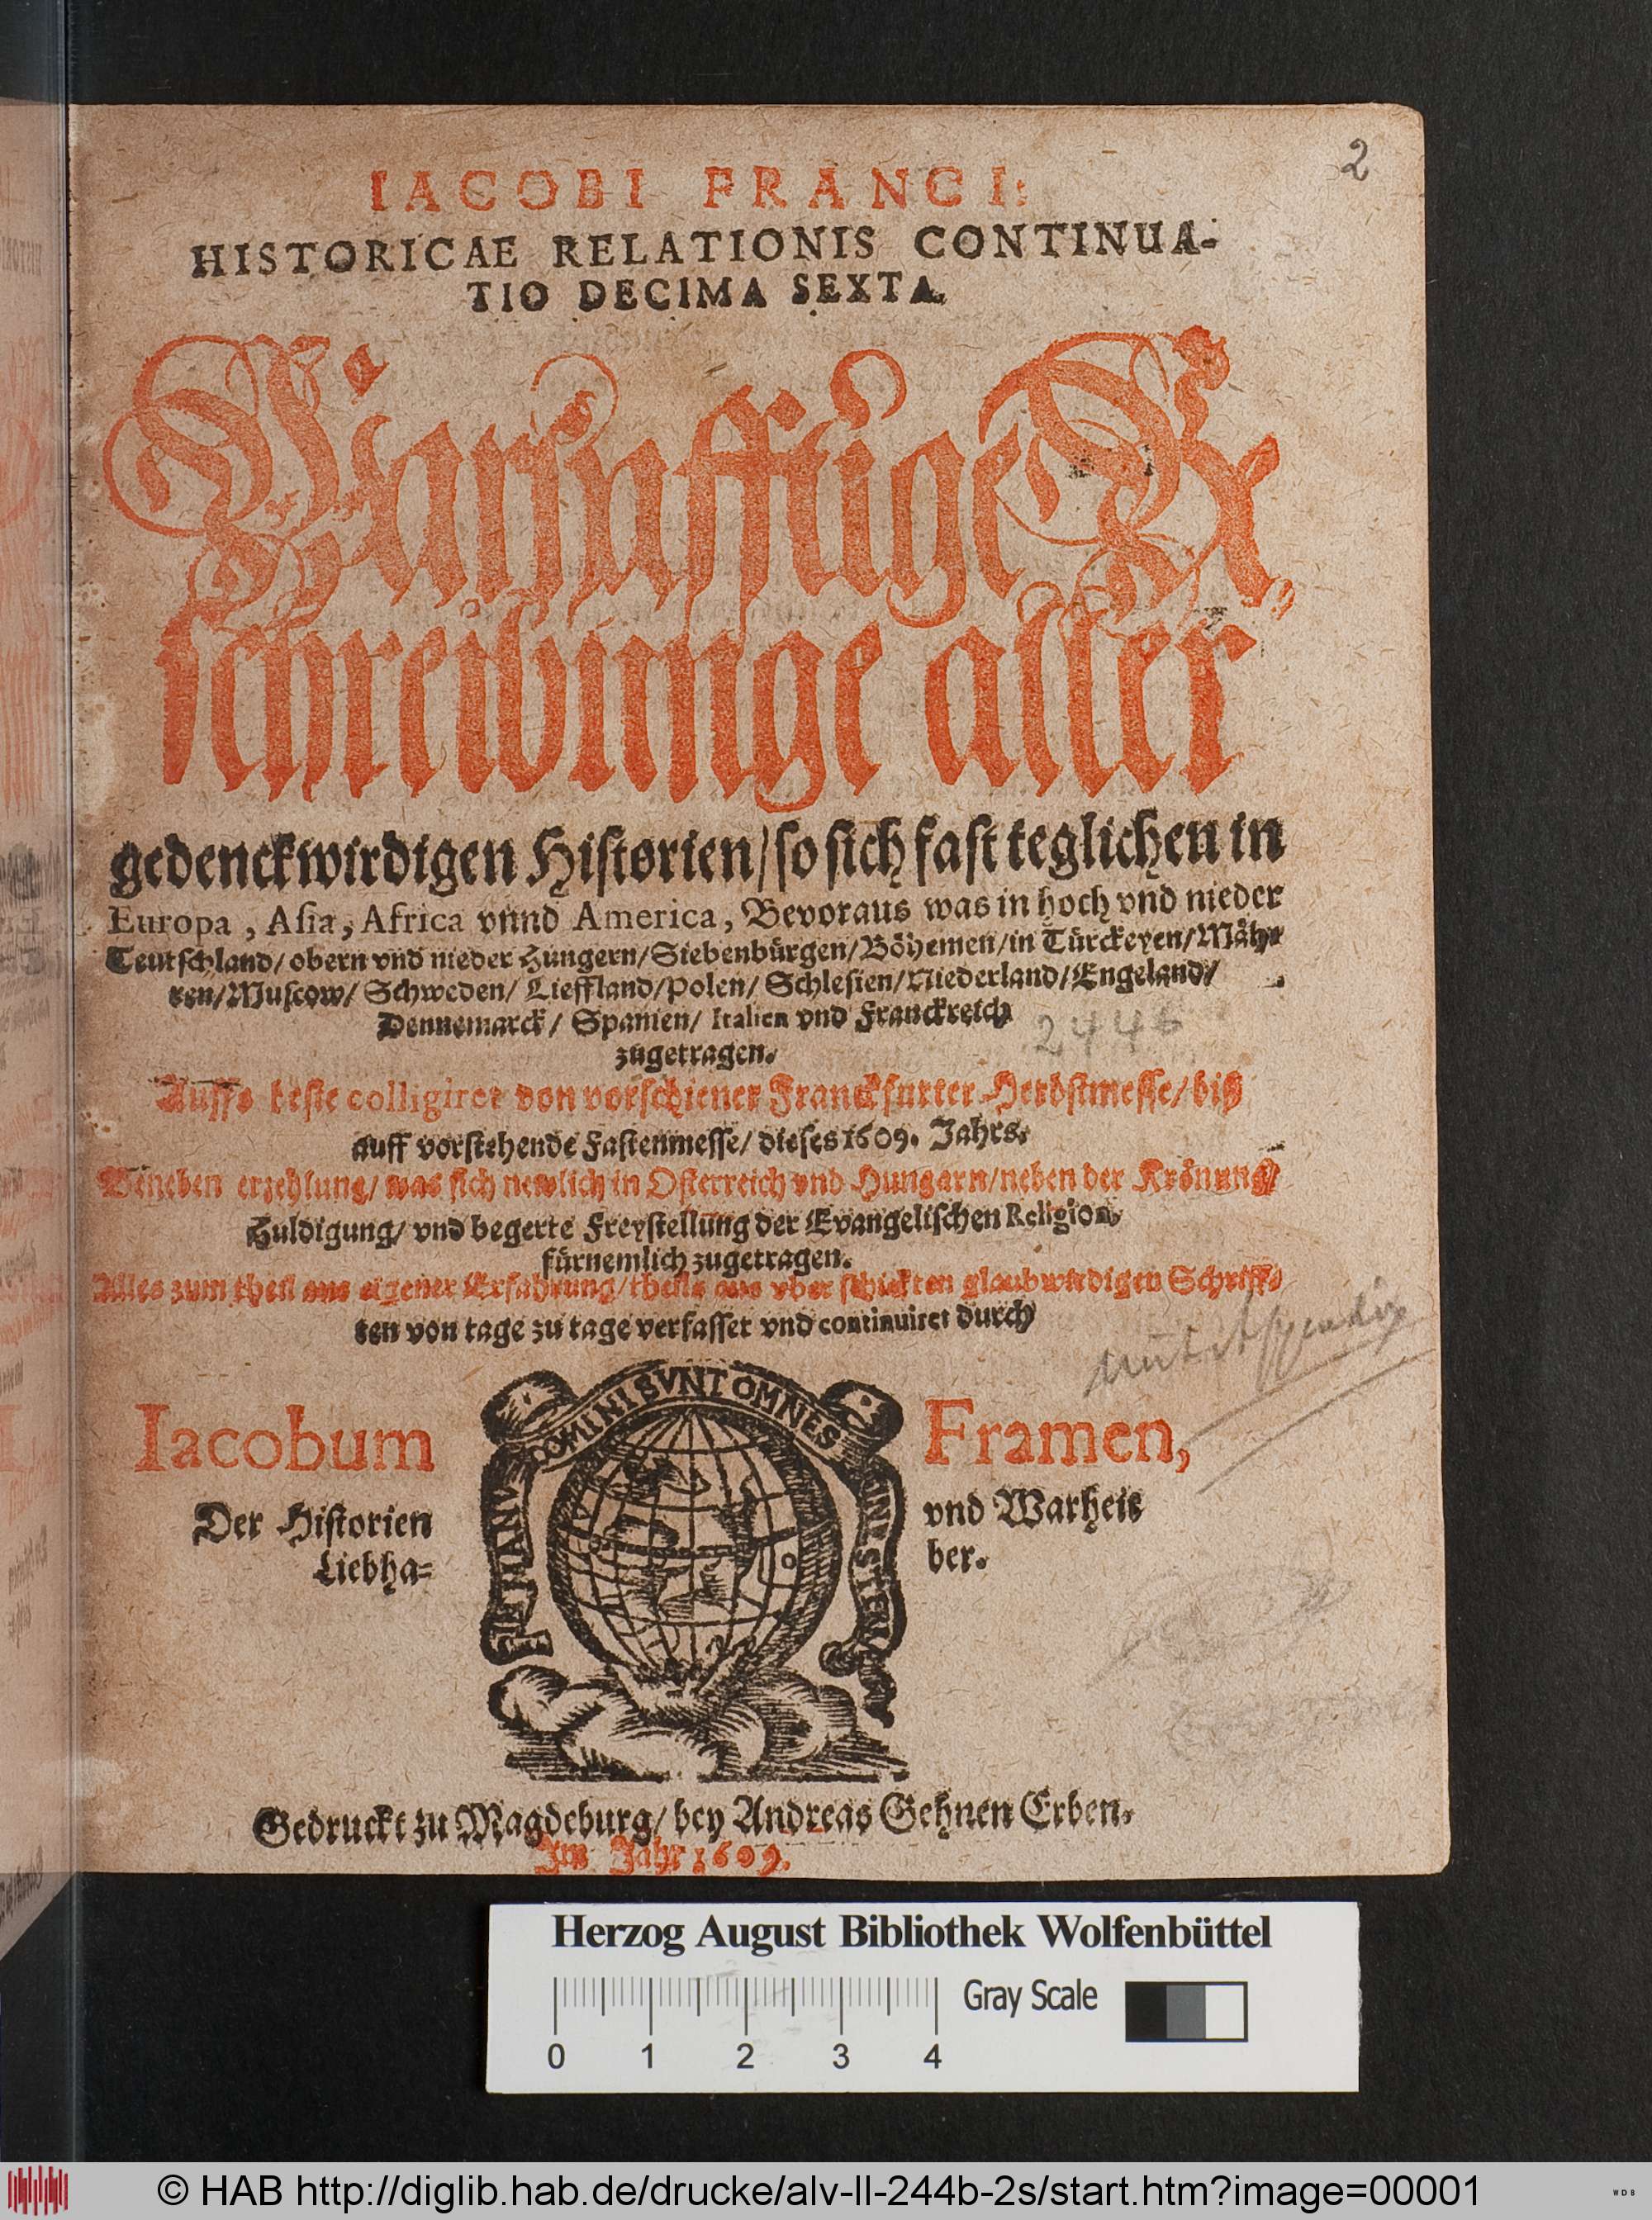 2
IACOBI FRANCI:
HISTORICAE RELATIONIS CONTINUA-
TIO DECIMA SEXTA.
Warhafftige Be,
schreibunge aller
gedenckwirdigen Historien/ so sich fast teglichen in
Europa, Asia, Africa vnnd America, Bevoraus was in hoch vnd nieder
Teutschland/ obern vnd nieder Hungern/ Siebenbürgen/ Böhemen/ in Türckeyen/ Mähr
ren/ Muscow/ Schweden/ Lieffland/ Polen/ Schlesien/ Niederland/ Engeland/
Dennemarck/ Spanien/ Italien vnd Franckreich
zugetragen.
Auffs beste colligiret von vorschiener Franckfurter Herbstmesse/ biß
auff vorstehende Fastenmesse/ dieses 1609. Jahrs.
Beneben erzehlung/ was sich newlich in Osterreich vnd Hungarn/ neben der Krönung/
Huldigung/ vnd begerte Freystellung der Evangelischen Religion,
fürnemlich zugetragen.
Alles zum theil aus eigener Erfahrung/ theils aus vberschickten glaubwirdigen Schriff-
ten von tage zu tage verfasset vnd continuiret durch
mit Appendix
DOMINI SVNT OMNES
Iacobum Framen,
Der Historien vnd Warheit
Liebha= ber.
Gedruckt zu Magdeburg/ bey Andreas Gehnen Erben.
Im Jahr 1609.
Herzog August Bibliothek Wolfenbüttel
Gray Scale
0 1 2 3 4
© HAB http://diglib.hab.de/drucke/alv-ll-244b-2s/start.htm?image=00001
WDB